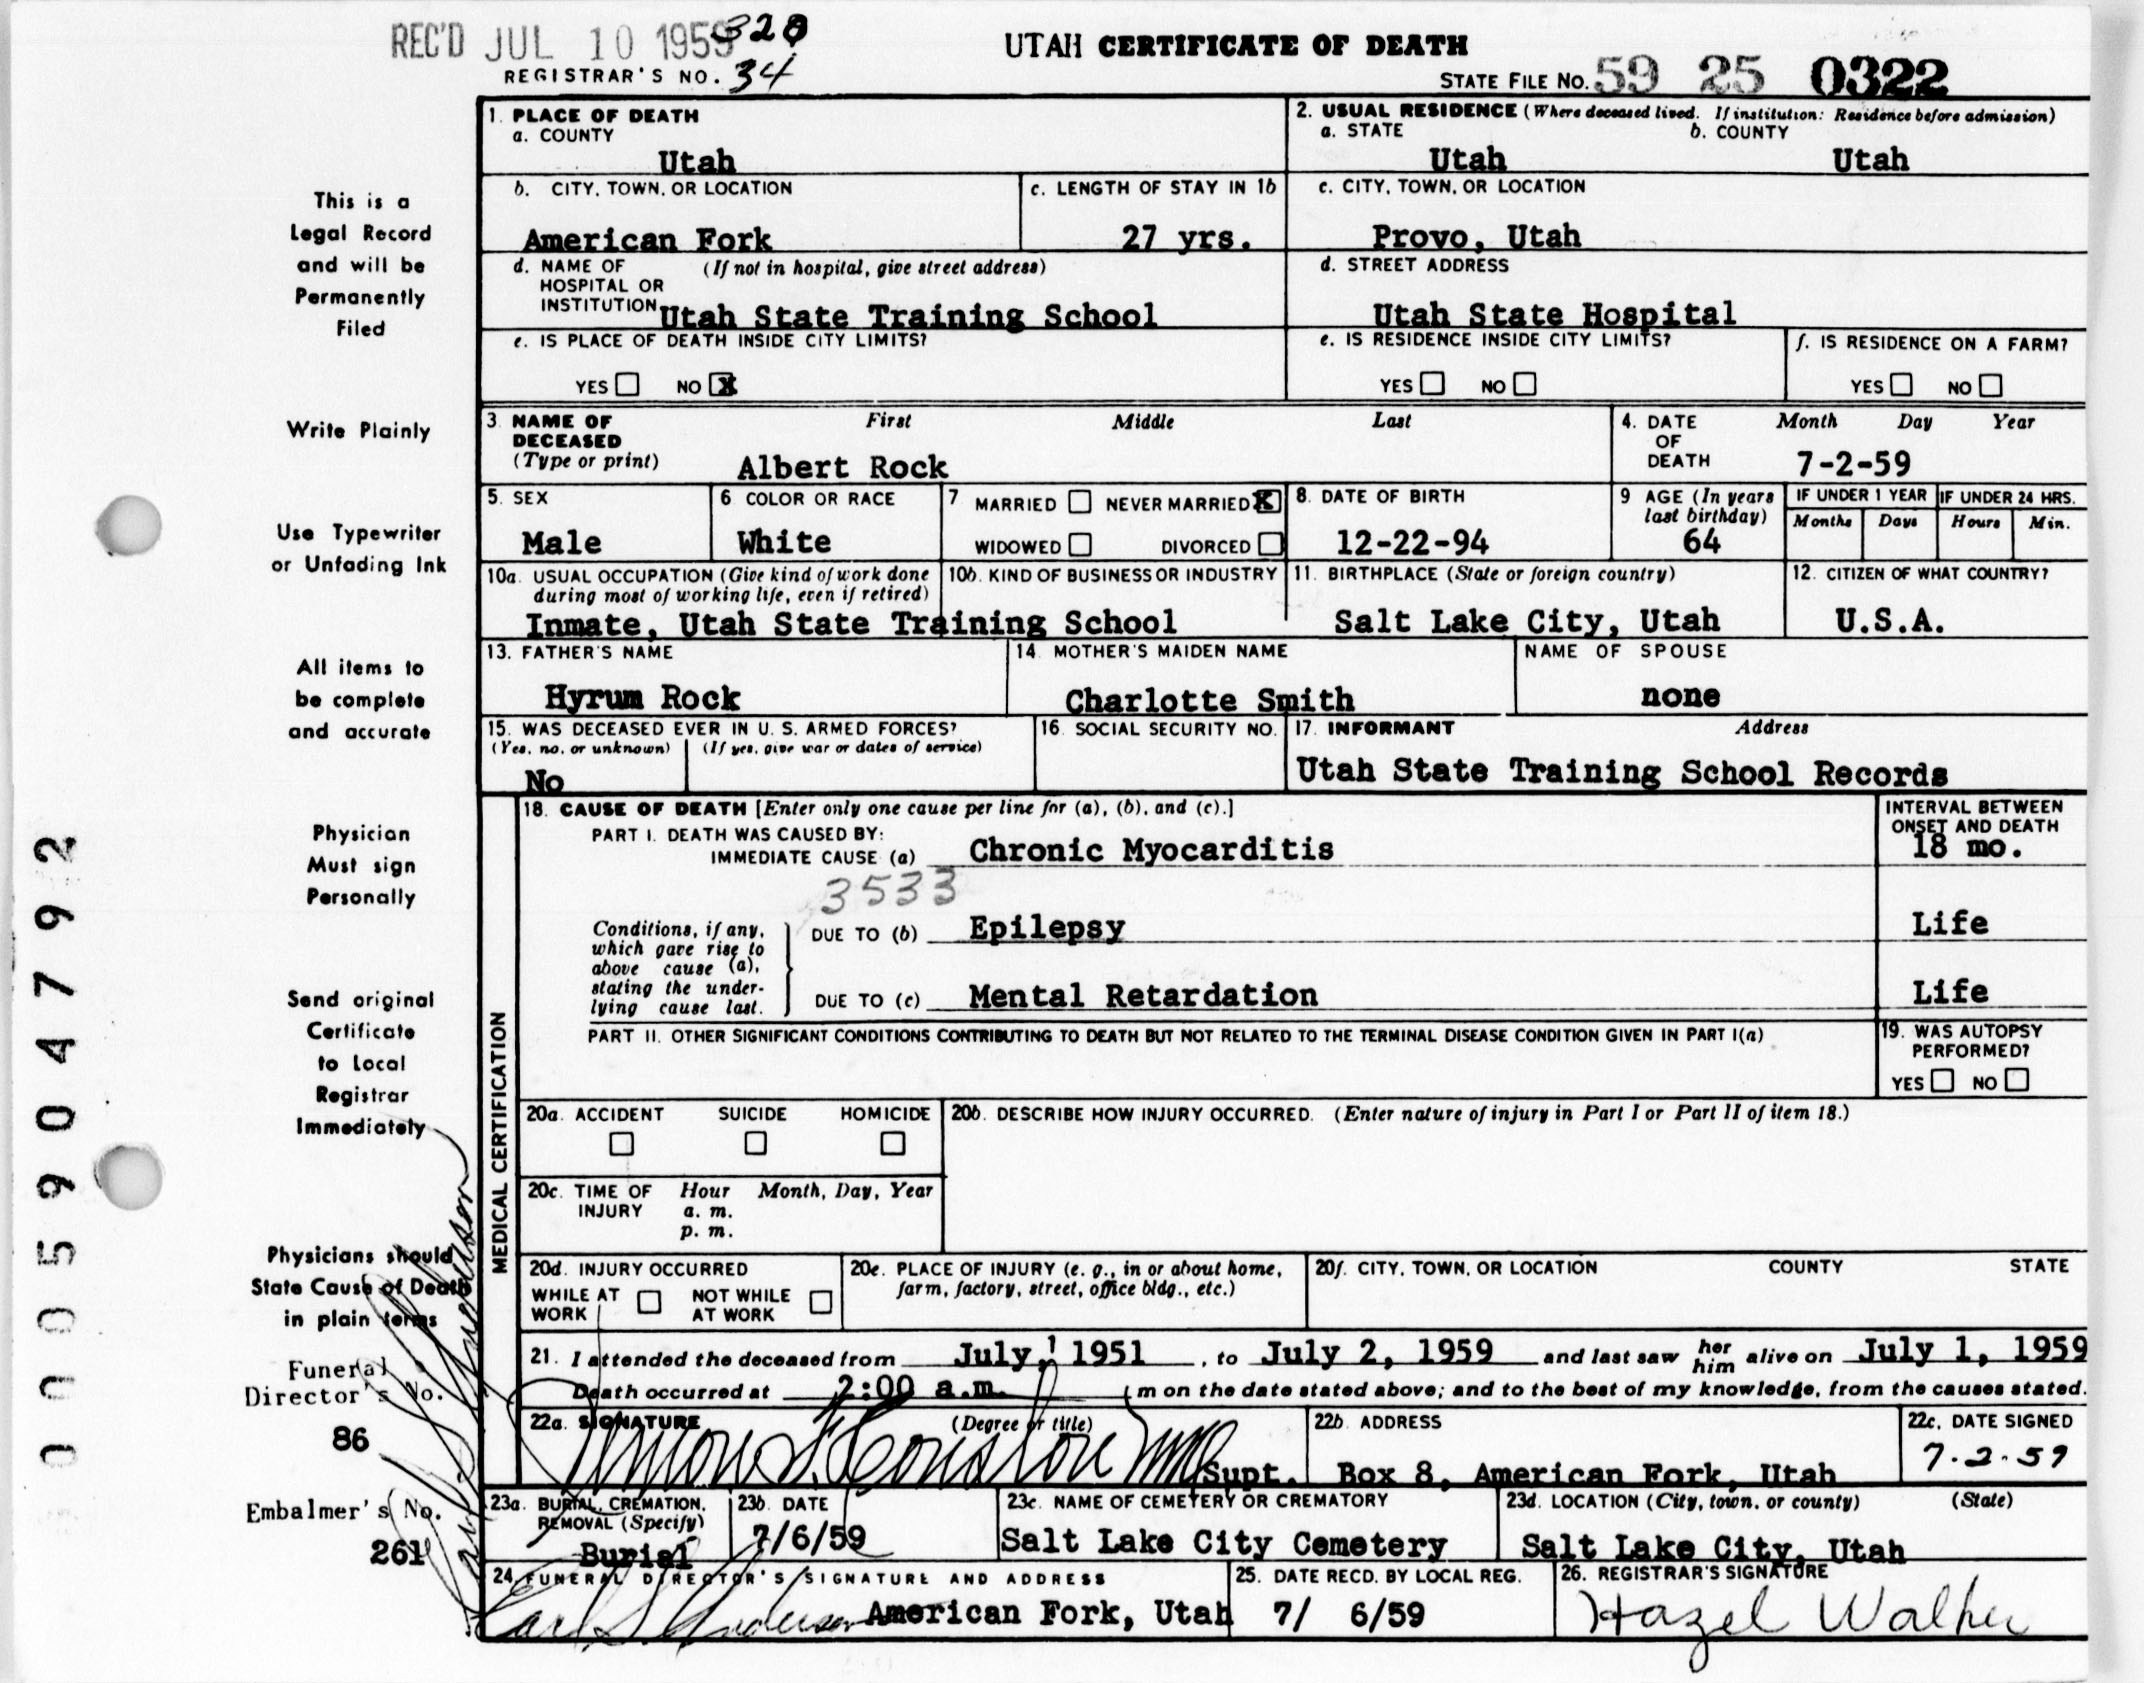 REC'D JUL 10 1959 328
UTAH CERTIFICATE OF DEATH
REGISTRAR'S NO. 34
STATE FILE NO. 59 25 0322
1. PLACE OF DEATH
a. COUNTY
Utah
2. USUAL RESIDENCE (Where deceased lived. If institution: Residence before admission)
a. STATE b. COUNTY
Utah Utah
b. CITY, TOWN, OR LOCATION
American Fork
c. LENGTH OF STAY IN 1b
27 yrs.
c. CITY, TOWN, OR LOCATION
Provo, Utah
d. NAME OF (If not in hospital, give street address)
HOSPITAL OR
INSTITUTION Utah State Training School
d. STREET ADDRESS
Utah State Hospital
e. IS PLACE OF DEATH INSIDE CITY LIMITS?
YES NO X
e. IS RESIDENCE INSIDE CITY LIMITS?
YES NO
f. IS RESIDENCE ON A FARM?
YES NO
3. NAME OF First Middle Last
DECEASED
(Type or print) Albert Rock
4. DATE Month Day Year
OF
DEATH 7-2-59
5. SEX
Male
6. COLOR OR RACE
White
7 MARRIED NEVER MARRIED X
WIDOWED DIVORCED
8. DATE OF BIRTH
12-22-94
9 AGE (In years
last birthday)
64
IF UNDER 1 YEAR IF UNDER 24 HRS.
Months Days Hours Min.
10a. USUAL OCCUPATION (Give kind of work done
during most of working life, even if retired)
10b. KIND OF BUSINESS OR INDUSTRY
Inmate, Utah State Training School
11. BIRTHPLACE (State or foreign country)
Salt Lake City, Utah
12. CITIZEN OF WHAT COUNTRY?
U.S.A.
13. FATHER'S NAME
Hyrum Rock
14. MOTHER'S MAIDEN NAME
Charlotte Smith
NAME OF SPOUSE
none
15. WAS DECEASED EVER IN U. S. ARMED FORCES?
(Yes, no, or unknown) (If yes, give war or dates of service)
No
16. SOCIAL SECURITY NO.
17. INFORMANT Address
Utah State Training School Records
18. CAUSE OF DEATH [Enter only one cause per line for (a), (b), and (c).]
PART I. DEATH WAS CAUSED BY:
IMMEDIATE CAUSE (a) Chronic Myocarditis
INTERVAL BETWEEN
ONSET AND DEATH
18 mo.
3533
Conditions, if any,
which gave rise to
above cause (a),
stating the under-
lying cause last.
DUE TO (b) Epilepsy Life
DUE TO (c) Mental Retardation Life
PART II. OTHER SIGNIFICANT CONDITIONS CONTRIBUTING TO DEATH BUT NOT RELATED TO THE TERMINAL DISEASE CONDITION GIVEN IN PART I(a)
19. WAS AUTOPSY
PERFORMED?
YES NO
20a. ACCIDENT SUICIDE HOMICIDE
20b. DESCRIBE HOW INJURY OCCURRED. (Enter nature of injury in Part I or Part II of item 18.)
20c. TIME OF Hour Month, Day, Year
INJURY a. m.
p. m.
20d. INJURY OCCURRED
WHILE AT NOT WHILE
WORK AT WORK
20e. PLACE OF INJURY (e. g., in or about home,
farm, factory, street, office bldg., etc.)
20f. CITY, TOWN, OR LOCATION COUNTY STATE
21. I attended the deceased from July, 1 1951, to July 2, 1959 and last saw her him alive on July 1, 1959
Death occurred at 2:00 a.m. m on the date stated above; and to the best of my knowledge, from the causes stated.
22a. SIGNATURE (Degree or title)
Supt.
22b. ADDRESS
Box 8, American Fork, Utah
22c. DATE SIGNED
7-2-59
23a. BURIAL, CREMATION,
REMOVAL (Specify)
Burial
23b. DATE
7/6/59
23c. NAME OF CEMETERY OR CREMATORY
Salt Lake City Cemetery
23d. LOCATION (City, town, or county) (State)
Salt Lake City, Utah
24. FUNERAL DIRECTOR'S SIGNATURE AND ADDRESS
Earl S. Anderson American Fork, Utah
25. DATE RECD. BY LOCAL REG.
7/ 6/59
26. REGISTRAR'S SIGNATURE
Hazel Walker
MEDICAL CERTIFICATION
This is a
Legal Record
and will be
Permanently
Filed
Write Plainly
Use Typewriter
or Unfading Ink
All items to
be complete
and accurate
Physician
Must sign
Personally
Send original
Certificate
to Local
Registrar
Immediately
Physicians should
State Cause of Death
in plain terms
Funeral
Director's No.
86
Embalmer's No.
261
0005904792